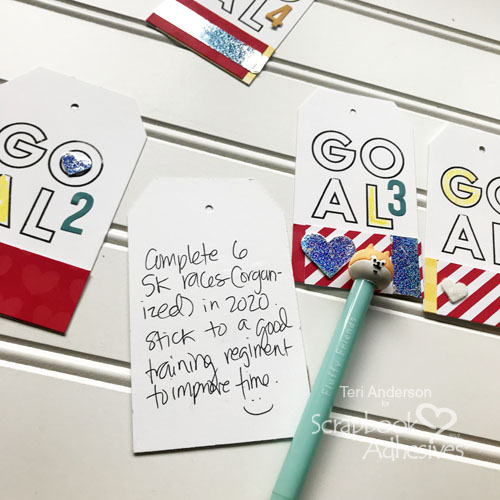 4
GO
AL2
GO
AL3
GO
AL
Complete 6
5k races (organ-
ized) in 2020.
stick to a good
training regiment
to improve time.
Fluffy Friends
Teri Anderson
for
Scrapbook
Adhesives